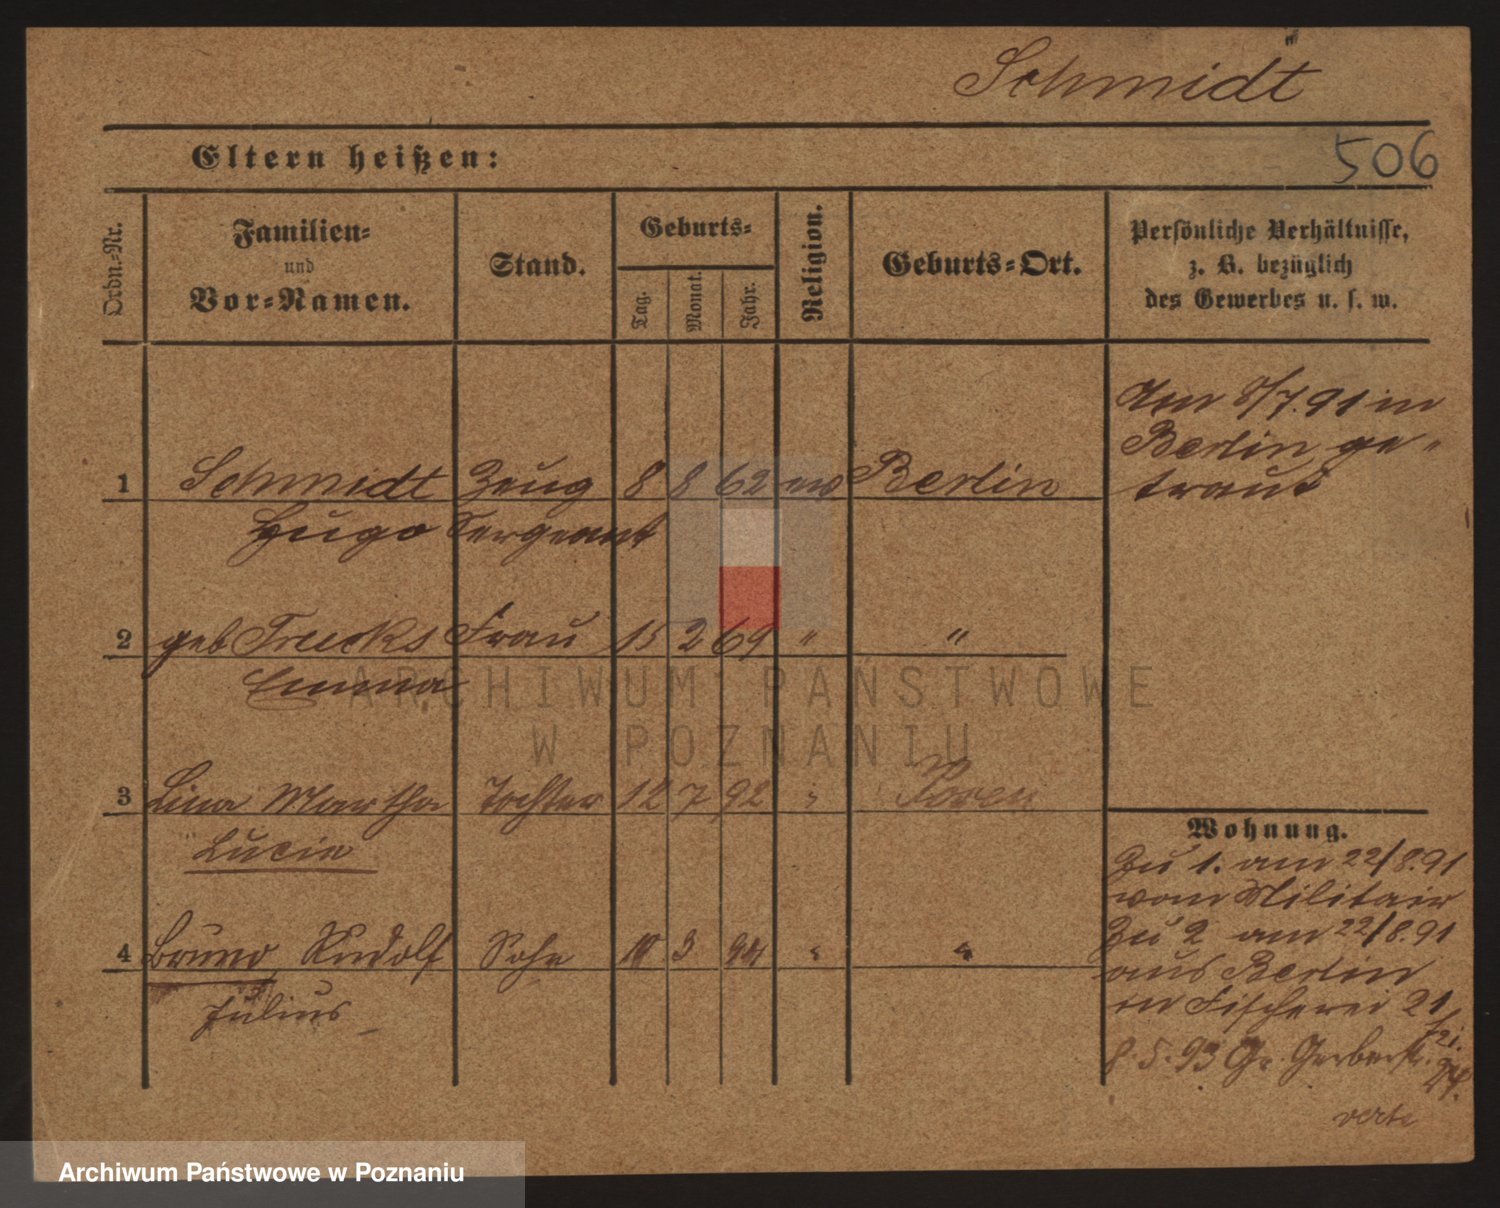 Schmidt
Eltern heißen:
506
Ordn.-Nr.
Familien-
und
Vor-Namen.
Stand.
Geburts-
Tag.
Monat.
Jahr.
Religion.
Geburts-Ort.
Persönliche Verhältnisse,
z. B. bezüglich
des Gewerbes u. s. w.
Am 8/7.91 in
Berlin ge-
traut
1 Schmidt Zeug 8 8 62 ev Berlin
Hugo Sergeant
2 geb Frau 15 2 69 " "
Emma
ARCHIWUM PAŃSTWOWE
W POZNANIU
3 Lina Martha Tochter 12 7 92 Posen
Lucie
4 Bruno Rudolf Sohn 3 94
Julius
Wohnung.
Zu 1. am 22/8.91
vom Militair
Zu 2 am 22/8.91
aus Berlin
in Fischerei 21
8.5.93 Gr. Gerberstr.
verte
Archiwum Państwowe w Poznaniu